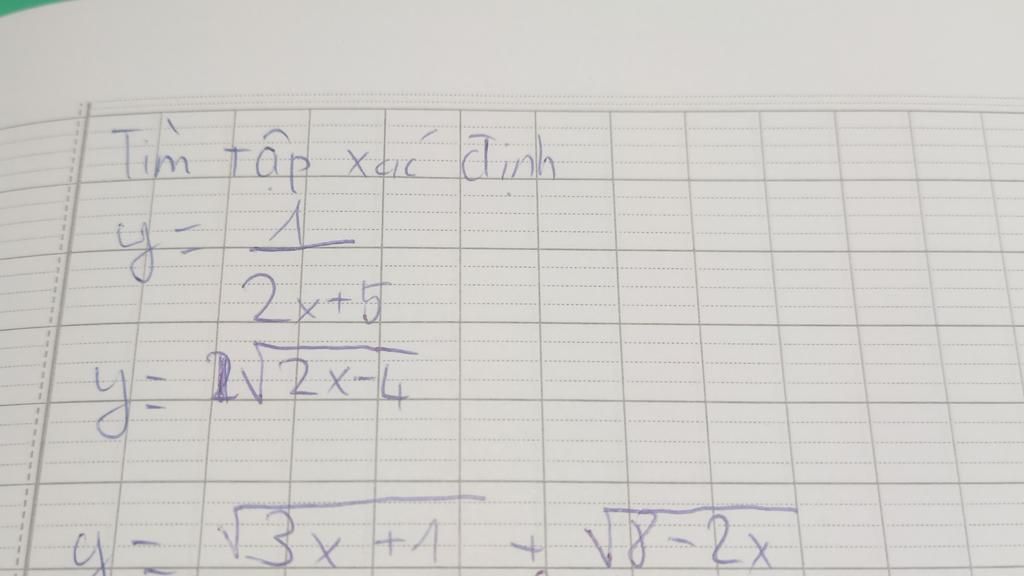 Tìm tập xác định
y = 1
2x+5
y = √2x-4
y = √3x+1 + √8-2x